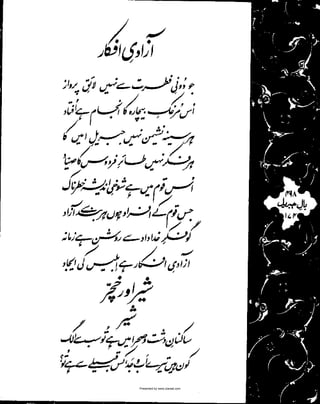 آزادیِ افکار
جو دونیِ فطرت سے نہیں لائقِ پرواز
اس مرغکِ بیچارہ کا انجام ہے افتاد
ہر سینہ نشیمن نہیں جبریلِ امیں کا
ہر فکر نہیں طائرِ فردوس کا صیاد
اس قوم میں ہے شوخیِ اندیشہ خطرناک
جس قوم کے افراد ہوں ہر بند سے آزاد
گو فکرِ خدا داد سے روشن ہے زمانہ
آزادیِ افکار ہے ابلیس کی ایجاد
شیر اور خچر
شیر
ساکنانِ دشت و صحرا میں ہے تو سب سے الگ
کون ہیں تیرے اب و جد کس قبیلے سے ہے تو؟
بالِ جبریل
Presented by www.iqbalali.com